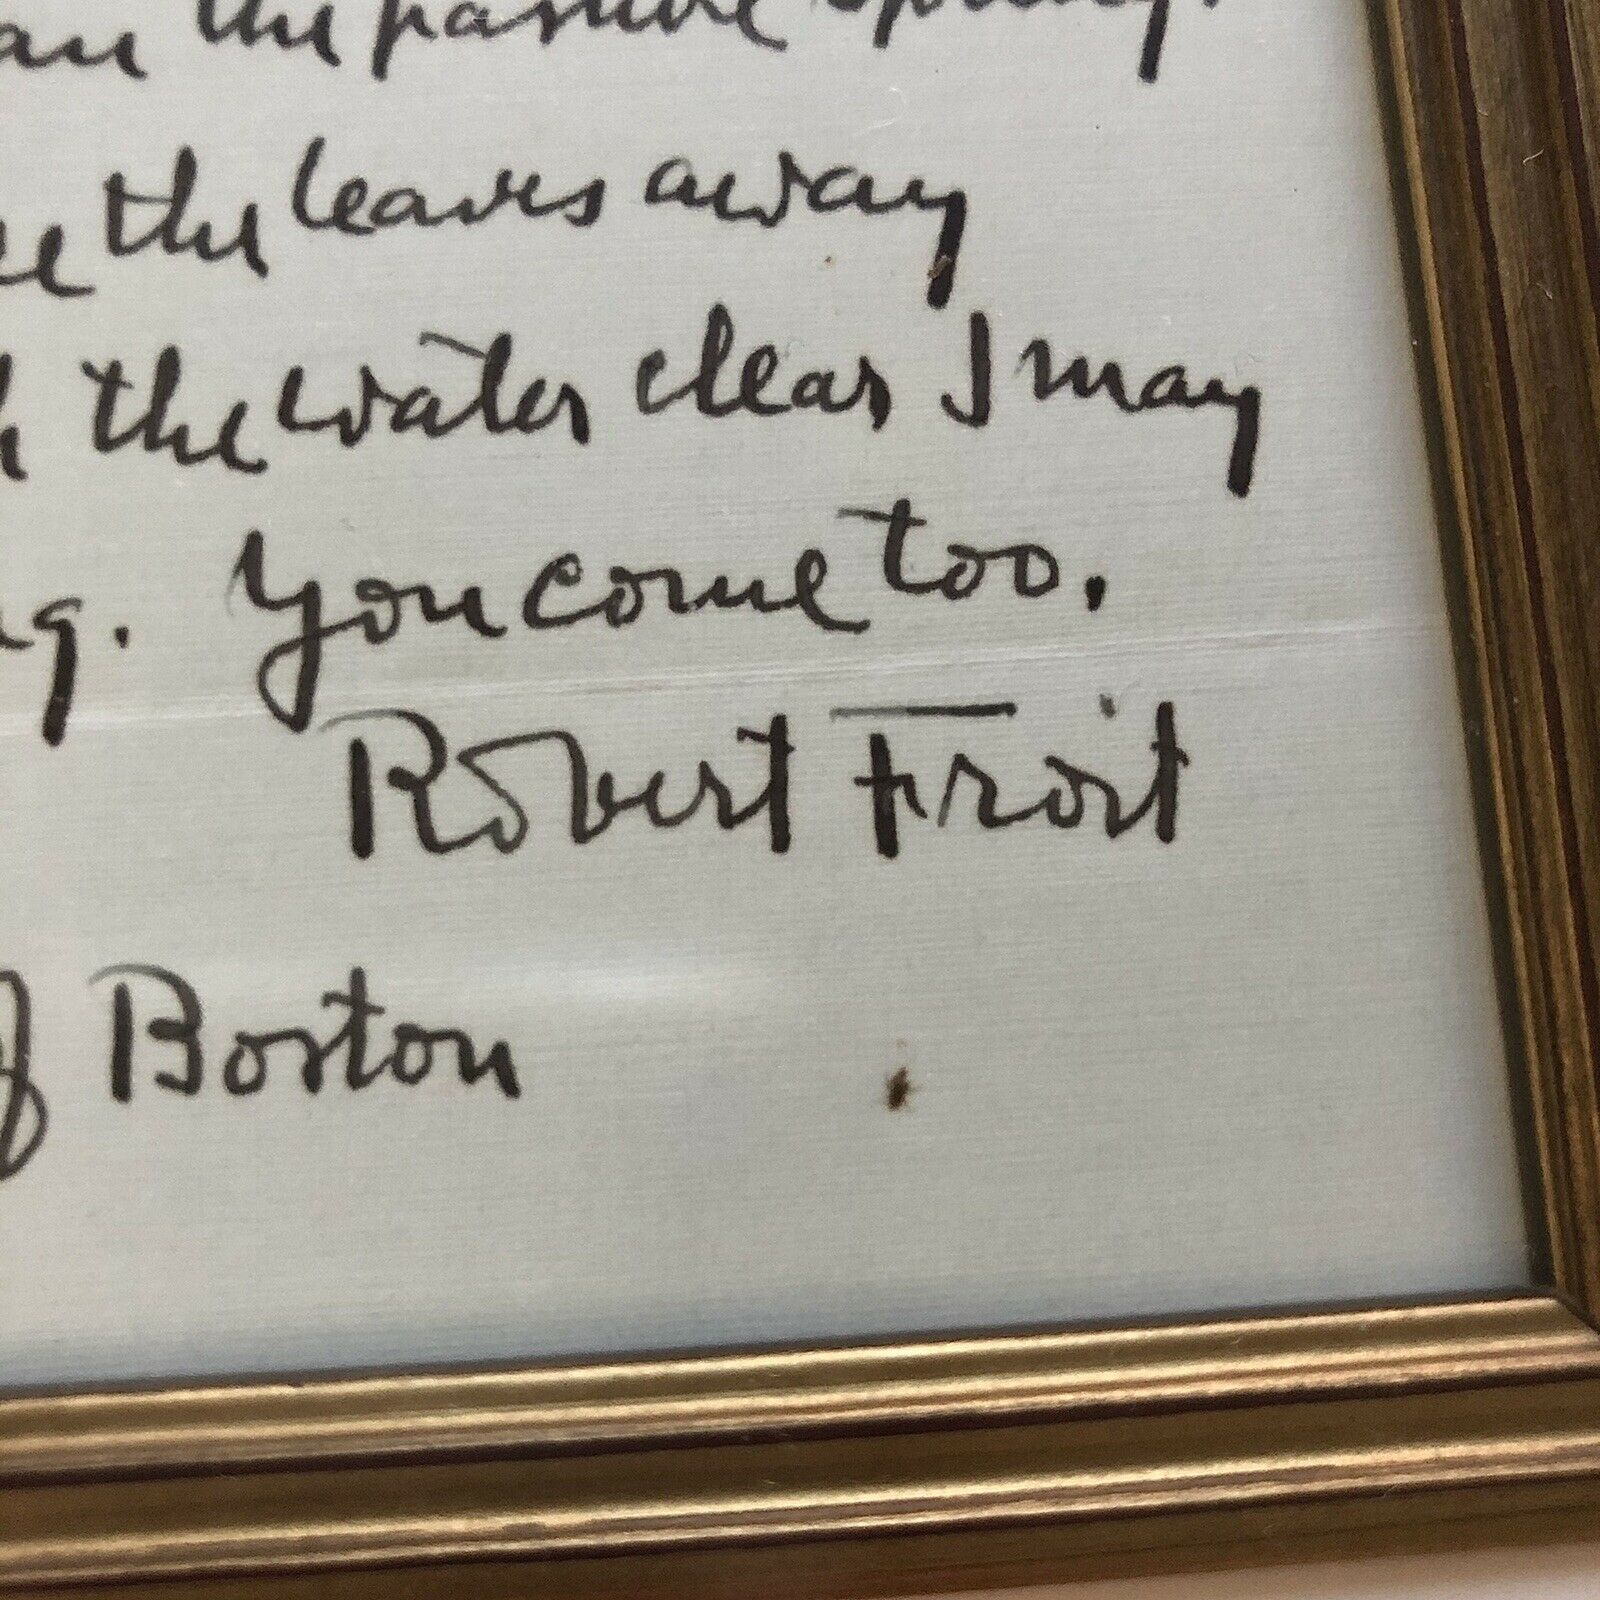 an the pasture spring.
the leaves away
the water clear I may
You come too.
Robert Frost
Boston